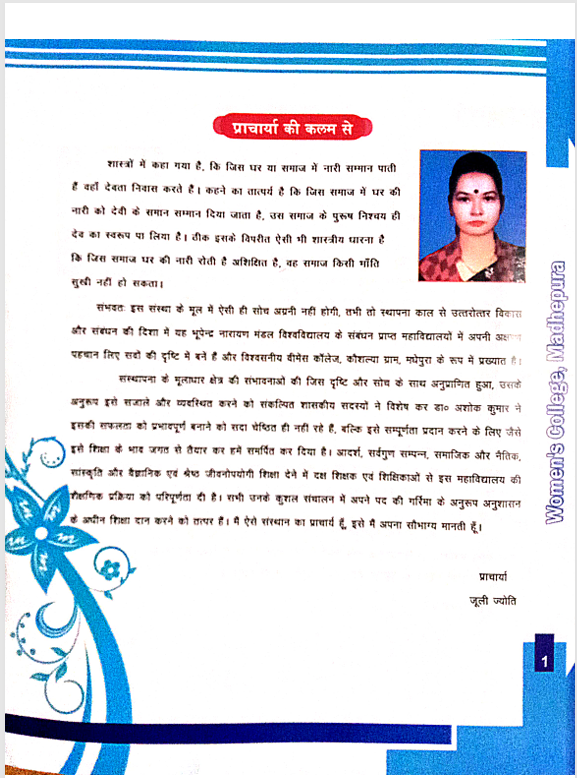 प्राचार्या की कलम से
शास्त्रों में कहा गया है, कि जिस घर या समाज में नारी सम्मान पाती
हैं वहाँ देवता निवास करते है। कहने का तात्पर्य है कि जिस समाज में घर की
नारी को देवी के समान सम्मान दिया जाता है, उस समाज के पुरूष निश्चय ही
देव का स्वरूप पा लिया है। ठीक इसके विपरीत ऐसी भी शास्त्रीय धारना है
कि जिस समाज घर की नारी रोती है अशिक्षित है, वह समाज किसी भाँति
सुखी नहीं हो सकता।
संभवतः इस संस्था के मूल में ऐसी ही सोच अग्रनी नही होगी, तभी तो स्थापना काल से उत्तरोत्तर विकास
और संबंधन की दिशा में यह भूपेन्द्र नारायण मंडल विश्वविद्यालय के संबंधन प्राप्त महाविद्यालयों में अपनी
पहचान लिए सवों की दृष्टि में बने हैं और विश्वसनीय वीमेंस कॉलेज, कौशल्या ग्राम, मधेपुरा के रूप में प्रख्यात है।
संस्थापना के मूलाधार क्षेत्र की संभावनाओं की जिस दृष्टि और सोच के साथ अनुप्राणित हुआ, उसके
अनुरूप इसे सजाले और व्यवस्थित करने को संकल्पित शासकीय सदस्यों ने विशेष कर डा० अशोक कुमार ने
इसकी सफलता को प्रभावपूर्ण बनाने को सदा चेष्ठित ही नही रहे हैं, बल्कि इसे सम्पूर्णता प्रदान करने के लिए जैसे
इसे शिक्षा के भाव जगत से तैयार कर हमें समर्पित कर दिया है। आदर्श, सर्वगुण सम्पन्न, समाजिक और नैतिक,
सांस्कृति और वैज्ञानिक एवं श्रेष्ठ जीवनोपयोगी शिक्षा देने में दक्ष शिक्षक एवं शिक्षिकाओं से इस महाविद्यालय की
शैक्षणिक प्रक्रिया को परिपूर्णता दी है। सभी उनके कुशल संचालन में अपने पद की गरिमा के अनुरूप अनुशासन
के अधीन शिक्षा दान करने को तत्पर हैं। मैं ऐसे संस्थान का प्राचार्य हूँ, इसे मैं अपना सौभाग्य मानती हूँ।
प्राचार्या
जूली ज्योति
Women's College, Madhepura
1